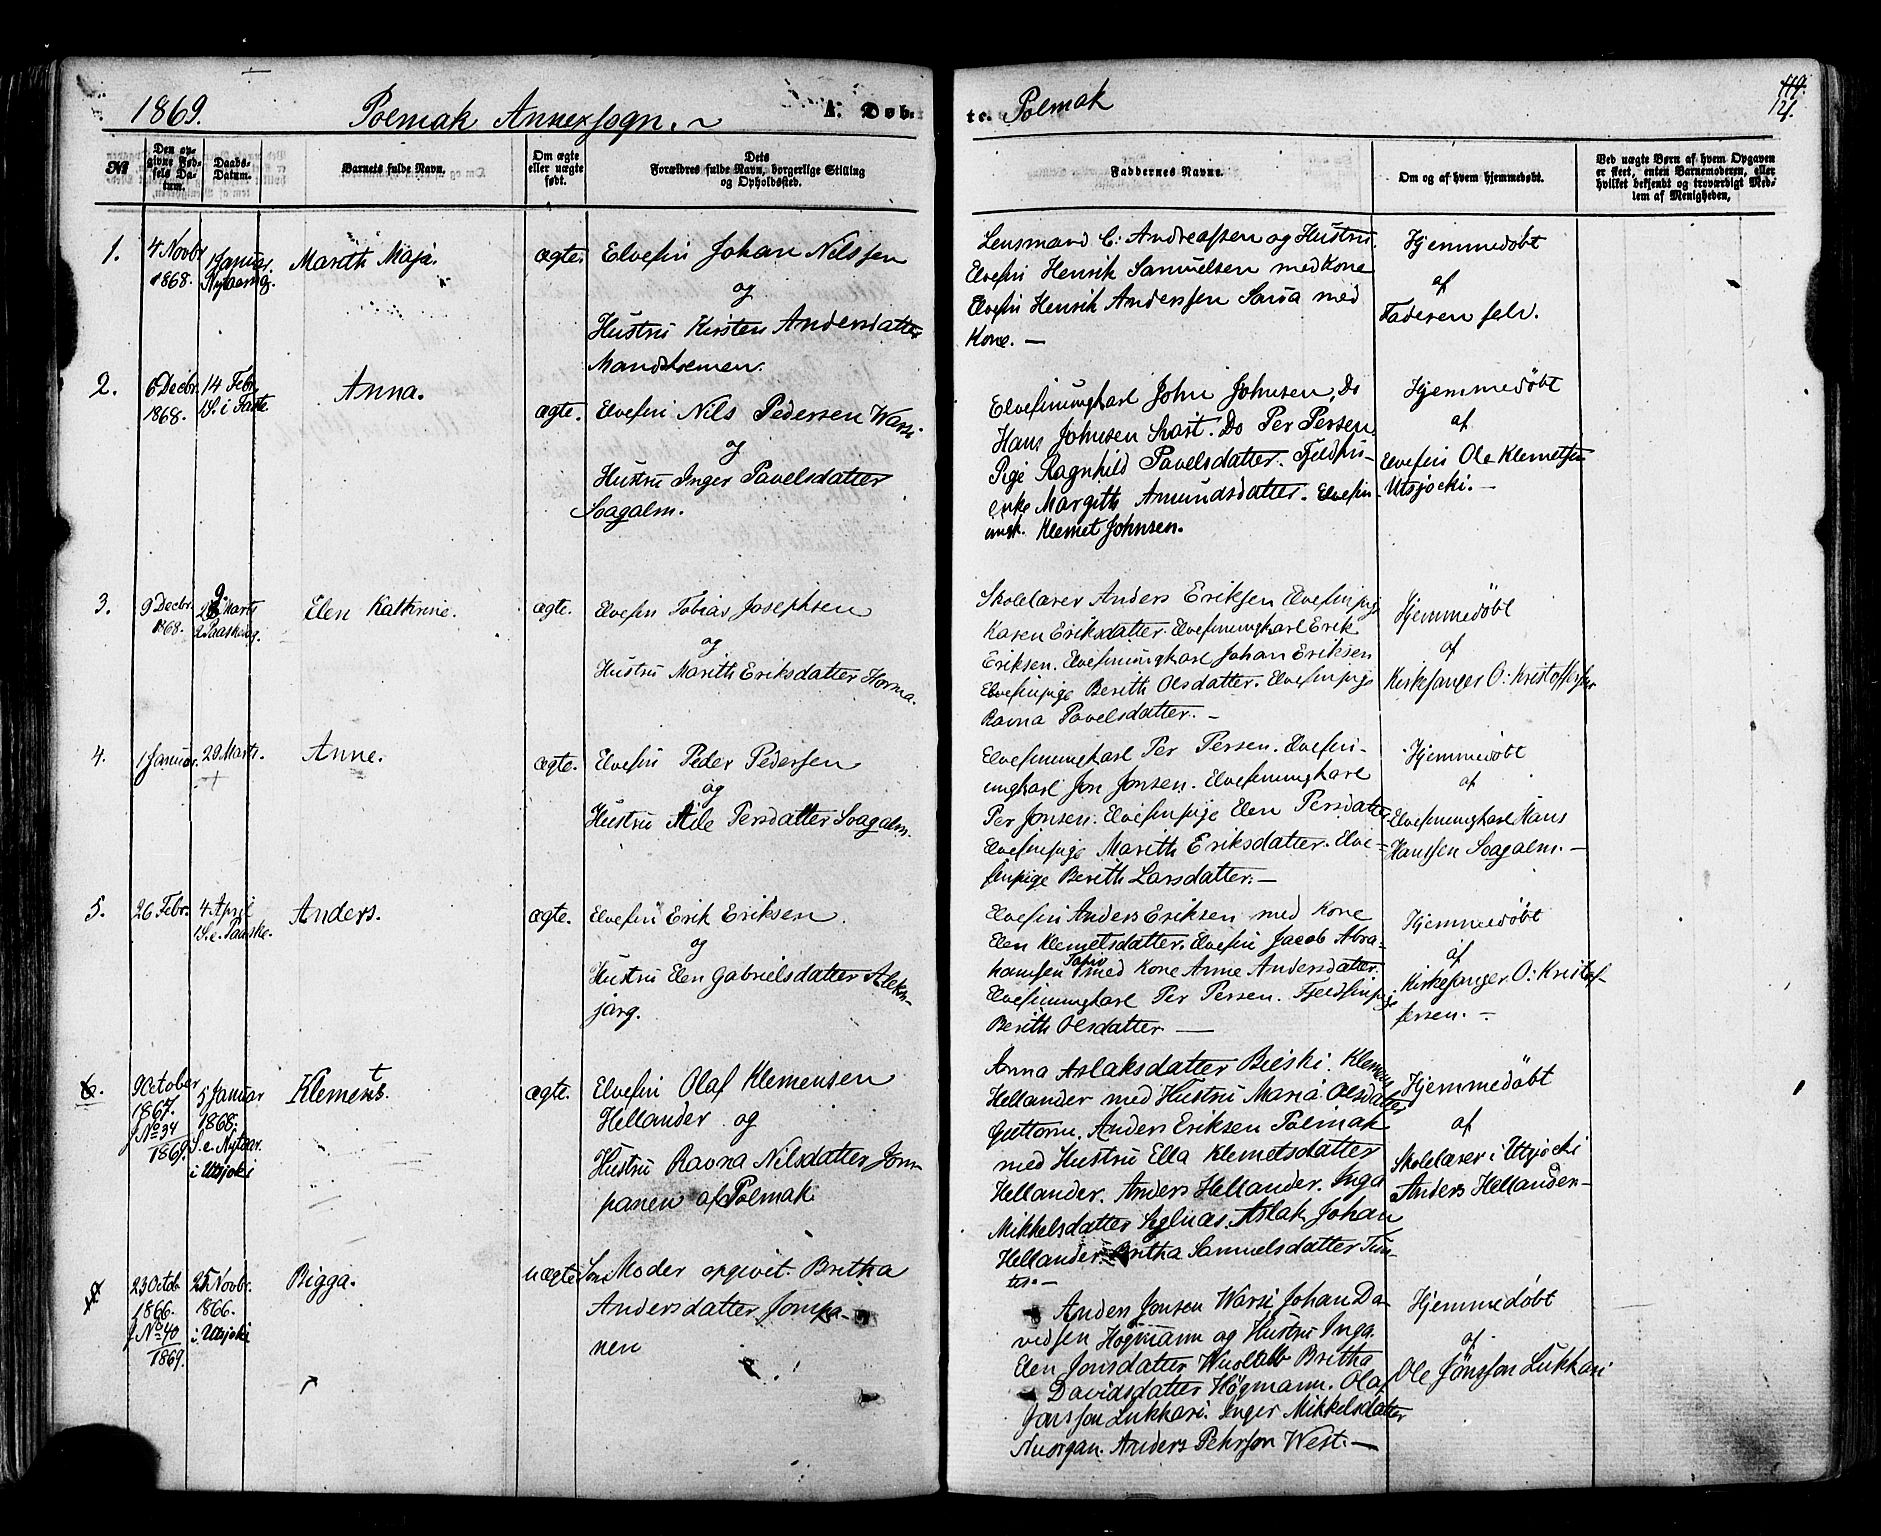 1869. Polmak Annexsogn. A. Døb-
№
Den op-
givne Fød-
sels Da-
tum.
Daabs-
Datum.
Barnets fulde Navn.
Om ægte
eller uægte
født.
Dets
Forældres fulde Navn, borgerlige Stilling
og Opholdssted.
1.
4 Novbr
1868.
1 Januar
Nytaarsdg.
Marith Maja.
ægte.
Elvefin Johan Nilssen
og
Hustru Kirsten Andersdatter
2.
6 Decbr.
1868.
14 Febr.
1 S. i Faste
Anna.
ægte.
Elvefin Nils Pedersen Warsi
og
Hustru Inger Pavelsdatter
Soagalm.
3.
9 Decbr.
1868.
29 Marts
2 Paaskedg.
Elen Kathrine.
ægte.
Elvefin Tobias Josephsen
og
Hustru Marith Eriksdatter Horma.
4.
1 Januar.
29 Marts.
Anne.
ægte.
Elvefin Peder Pedersen
og
Hustru Aile Persdatter Soagalm.
5.
26 Febr.
4 April
1 S. e. Paaske.
Anders.
ægte.
Elvefin Erik Eriksen.
og
Hustru Elen Gabrielsdatter Alek-
jarg.
6.
9 October
1867.
f No 34
1869.
5 Januar
1868.
S. e. Nytaar.
i Utsjoki
Klement.
ægte.
Elvefin Olaf Klemensen
Hellander og
Hustru Ravna Nilsdatter Jom-
panen af Polmak
23 Octob.
1866.
f No 40
1869.
25 Novbr.
1866.
i Utsjoki
Bigga.
uægte
Moder opgivet. Britha
Andersdatter Jompa-
nen
te. Polmak
119.
124.
Faddernes Navne.
Om og af hvem hjemmedøbt.
Ved uægte Børn af hvem Opgaven
er skeet, enten Barnemoderen, eller
hvilket bekjendt og troværdigt Med-
lem af Menigheden.
Lensmand C. Andreassen og Hustru.
Elvefin Henrik Samuelsen med Kone
Elvefin Henrik Anderssen Saria med
Kone. —
Hjemmedøbt
af
Faderen selv.
Elvefinungkarl John Johnsen, Do
Hans Johnsen Skast. Do Per Persen.
Pige Ragnhild Pavelsdatter. Fjeldfin-
enke Margith Amundsdatter. Elvefin-
ungk. Klemet Johnsen.
Hjemmedøbt
af
Elvefin Ole Klemetsen
Utsjocki. —
Skolelærer Anders Eriksen Elvefinpige
Karen Eriksdatter. Elvefinungkarl Erik
Eriksen. Elvefinungkarl Johan Eriksen
Elvefinpige Berith Olsdatter. Elvefinpige
Ravna Pavelsdatter. —
Hjemmedøbt
af
Kirkesanger O. Kristoffersen
Elvefinungkarl Per Persen. Elvefin-
ungkarl Jon Jonsen. Elvefinungkarl
Per Jonsen. Elvefinpige Elen Persdatter.
Elvefinpige Marith Eriksdatter. Elve-
finpige Berith Larsdatter. —
Hjemmedøbt
af
Elvefinungkarl Hans
Hanssen Soagalm. —
Elvefin Anders Eriksen med Kone
Elen Klemetsdatter. Elvefin Jacob Abra-
hamsen med Kone Anne Andersdatter.
Elvefinungkarl Per Persen. Fjeldfinpige
Berith Olsdatter —
Hjemmedøbt
af
Kirkesanger O. Kristof-
fersen. —
Anna Aslaksdatter Bieski. Klemens
Hellander med Hustru Maria Olsdatter
Guttorm. Anders Eriksen Polmak
med Hustru Ella Klemetsdatter
Hellander. Anders Hellander. Inga
Mikkelsdatter Aslak Johan
Hellander. Britha Samuelsdatter
Hjemmedøbt
af
Skolelærer i Utsjocki
Anders Hellander
Anders Jonsen Warsi Johan Da-
vidsen Högmann og Hustru Inga.
Elen Jonsdatter Wuolab Britha
Davidsdatter Högmann. Olaf
Jonsson Lukkari. Inger Mikkelsdatter
Nuorgan. Anders Pehrson West. —
Hjemmedøbt
af
Ole Jönsson Lukkari